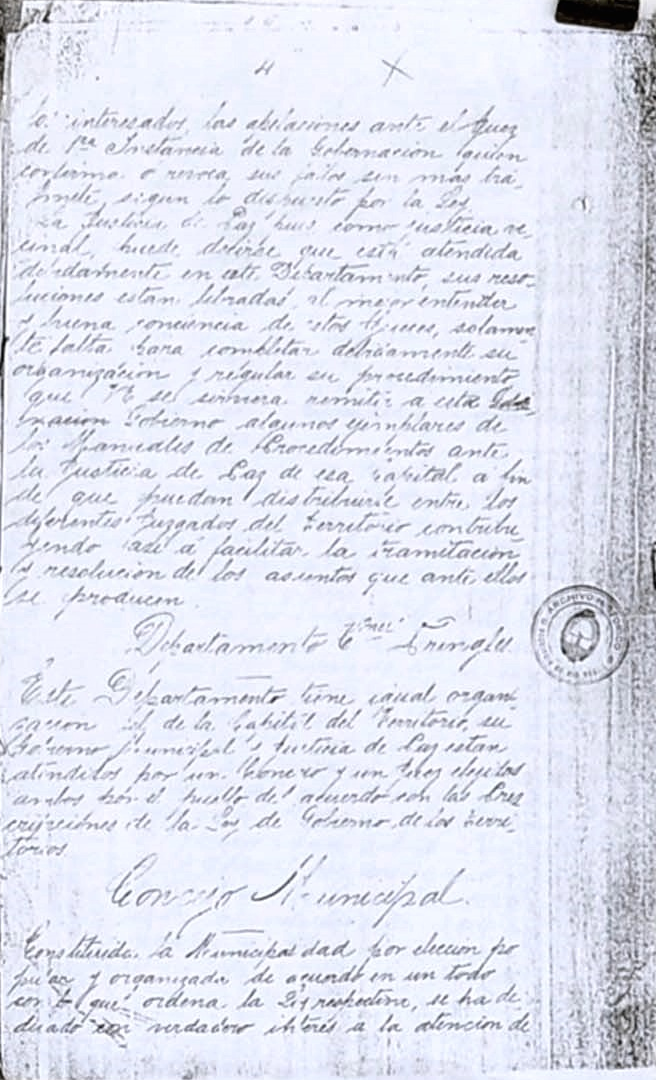 4
los interesados, las apelaciones ante el Juez
de 1ra Instancia de la Gobernacion quien
confirma o revoca sus fallos sin mas trá-
mite, segun lo dispuesto por la Ley
La Justicia de Paz pues como justicia ve-
cinal, puede decirse que está atendida
debidamente en este Departamento, sus reso-
luciones estan libradas, al mejor entender
y buena conciencia de estos Jueces, solamen-
te falta para completar debidamente su
organizacion y regular su procedimiento
que VE se sirviera remitir a esta
Gobierno algunos ejemplares de
los Manuales de Procedimientos ante
la Justicia de Paz de esa Capital a fin
de que puedan distribuirse entre los
diferentes Juzgados del Territorio contribu-
yendo asi á facilitar la tramitacion
y resolucion de los asuntos que ante ellos
se producen.
Departamento Cnel Pringles
Este Departamento tiene igual organi-
zacion al de la Capital del Territorio, su
Gobierno Municipal y Justicia de Paz estan
atendidos por un Concejo y un Juez elejidos
ambos por el pueblo de acuerdo con las Pres
cripciones de la Ley de Gobierno de los Terri-
torios
Concejo Municipal.
Constituida la Municipalidad por eleccion po
pular y organizada de acuerdo en un todo
con lo que ordena la Ley respectiva, se ha de-
dicado con verdadero interés a la atencion de
ARCHIVO